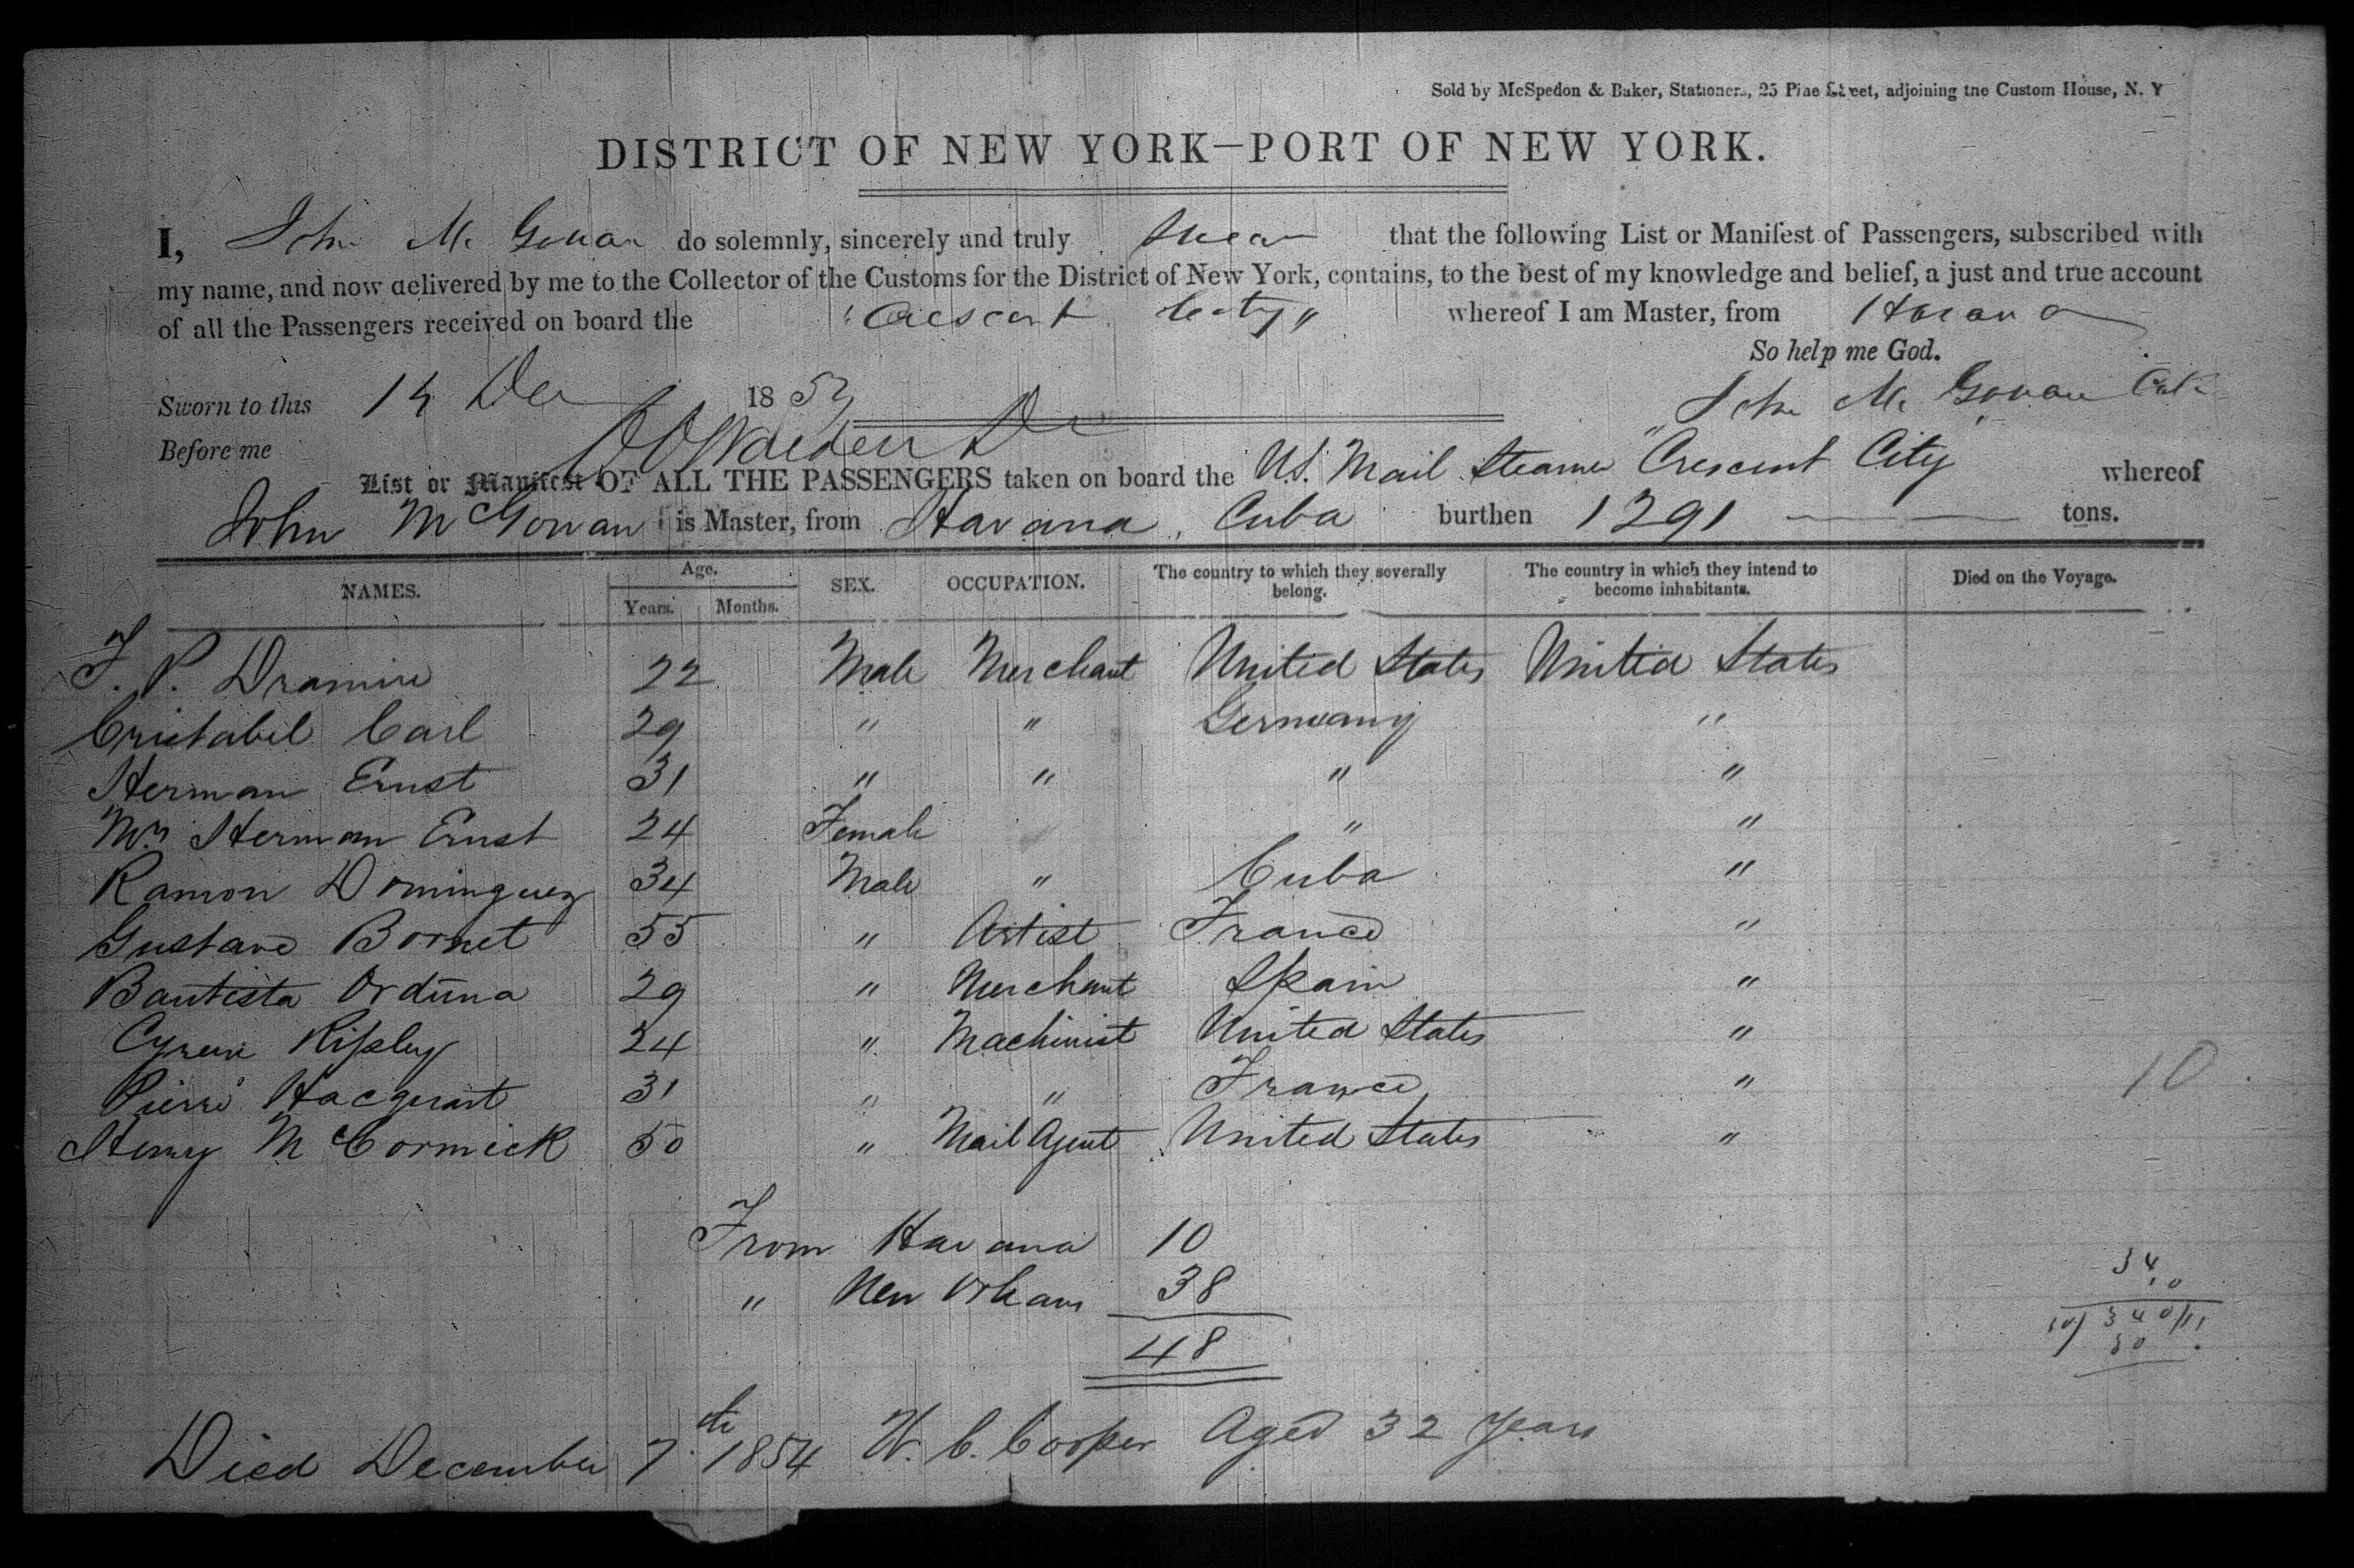 Sold by McSpedon & Baker, Stationers, 25 Pine Street, adjoining the Custom House, N. Y
DISTRICT OF NEW YORK—PORT OF NEW YORK.
I, John Mc Gowan do solemnly, sincerely and truly swear that the following List or Manifest of Passengers, subscribed with
my name, and now delivered by me to the Collector of the Customs for the District of New York, contains, to the best of my knowledge and belief, a just and true account
of all the Passengers received on board the "Crescent City" whereof I am Master, from Havana
So help me God.
Sworn to this 14 Dec 18 54
John Mc Gowan
Before me
List or Manifest OF ALL THE PASSENGERS taken on board the U.S. Mail Steamer "Crescent City" whereof
John McGowan is Master, from Havana, Cuba burthen 1291 tons.
NAMES. Age. Years. Months. SEX. OCCUPATION. The country to which they severally belong. The country in which they intend to become inhabitants. Died on the Voyage.
22 Male Merchant United States United States
Cristabel Carl 29 " " Germany "
Herman Ernst 31 " " " "
Mrs Herman Ernst 24 Female " "
Ramon Dominguez 34 Male " Cuba "
Gustave Bornet 55 " Artist France "
Bautista Orduna 29 " Merchant Spain "
Ripley 24 " Machinist United States "
Pierre Hacquart 31 " " France "
Henry McCormick 50 " Mail Agent United States "
10
From Havana 10
" New Orleans 38
48
34
10
340
30
Died December 7th 1854 W. C. Cooper Aged 32 Years